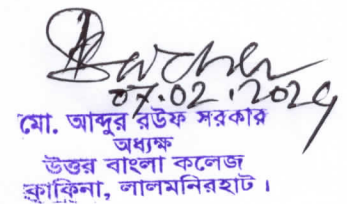 07.02.2024
মো. আব্দুর রউফ সরকার
অধ্যক্ষ
উত্তর বাংলা কলেজ
কাকিনা, লালমনিরহাট।